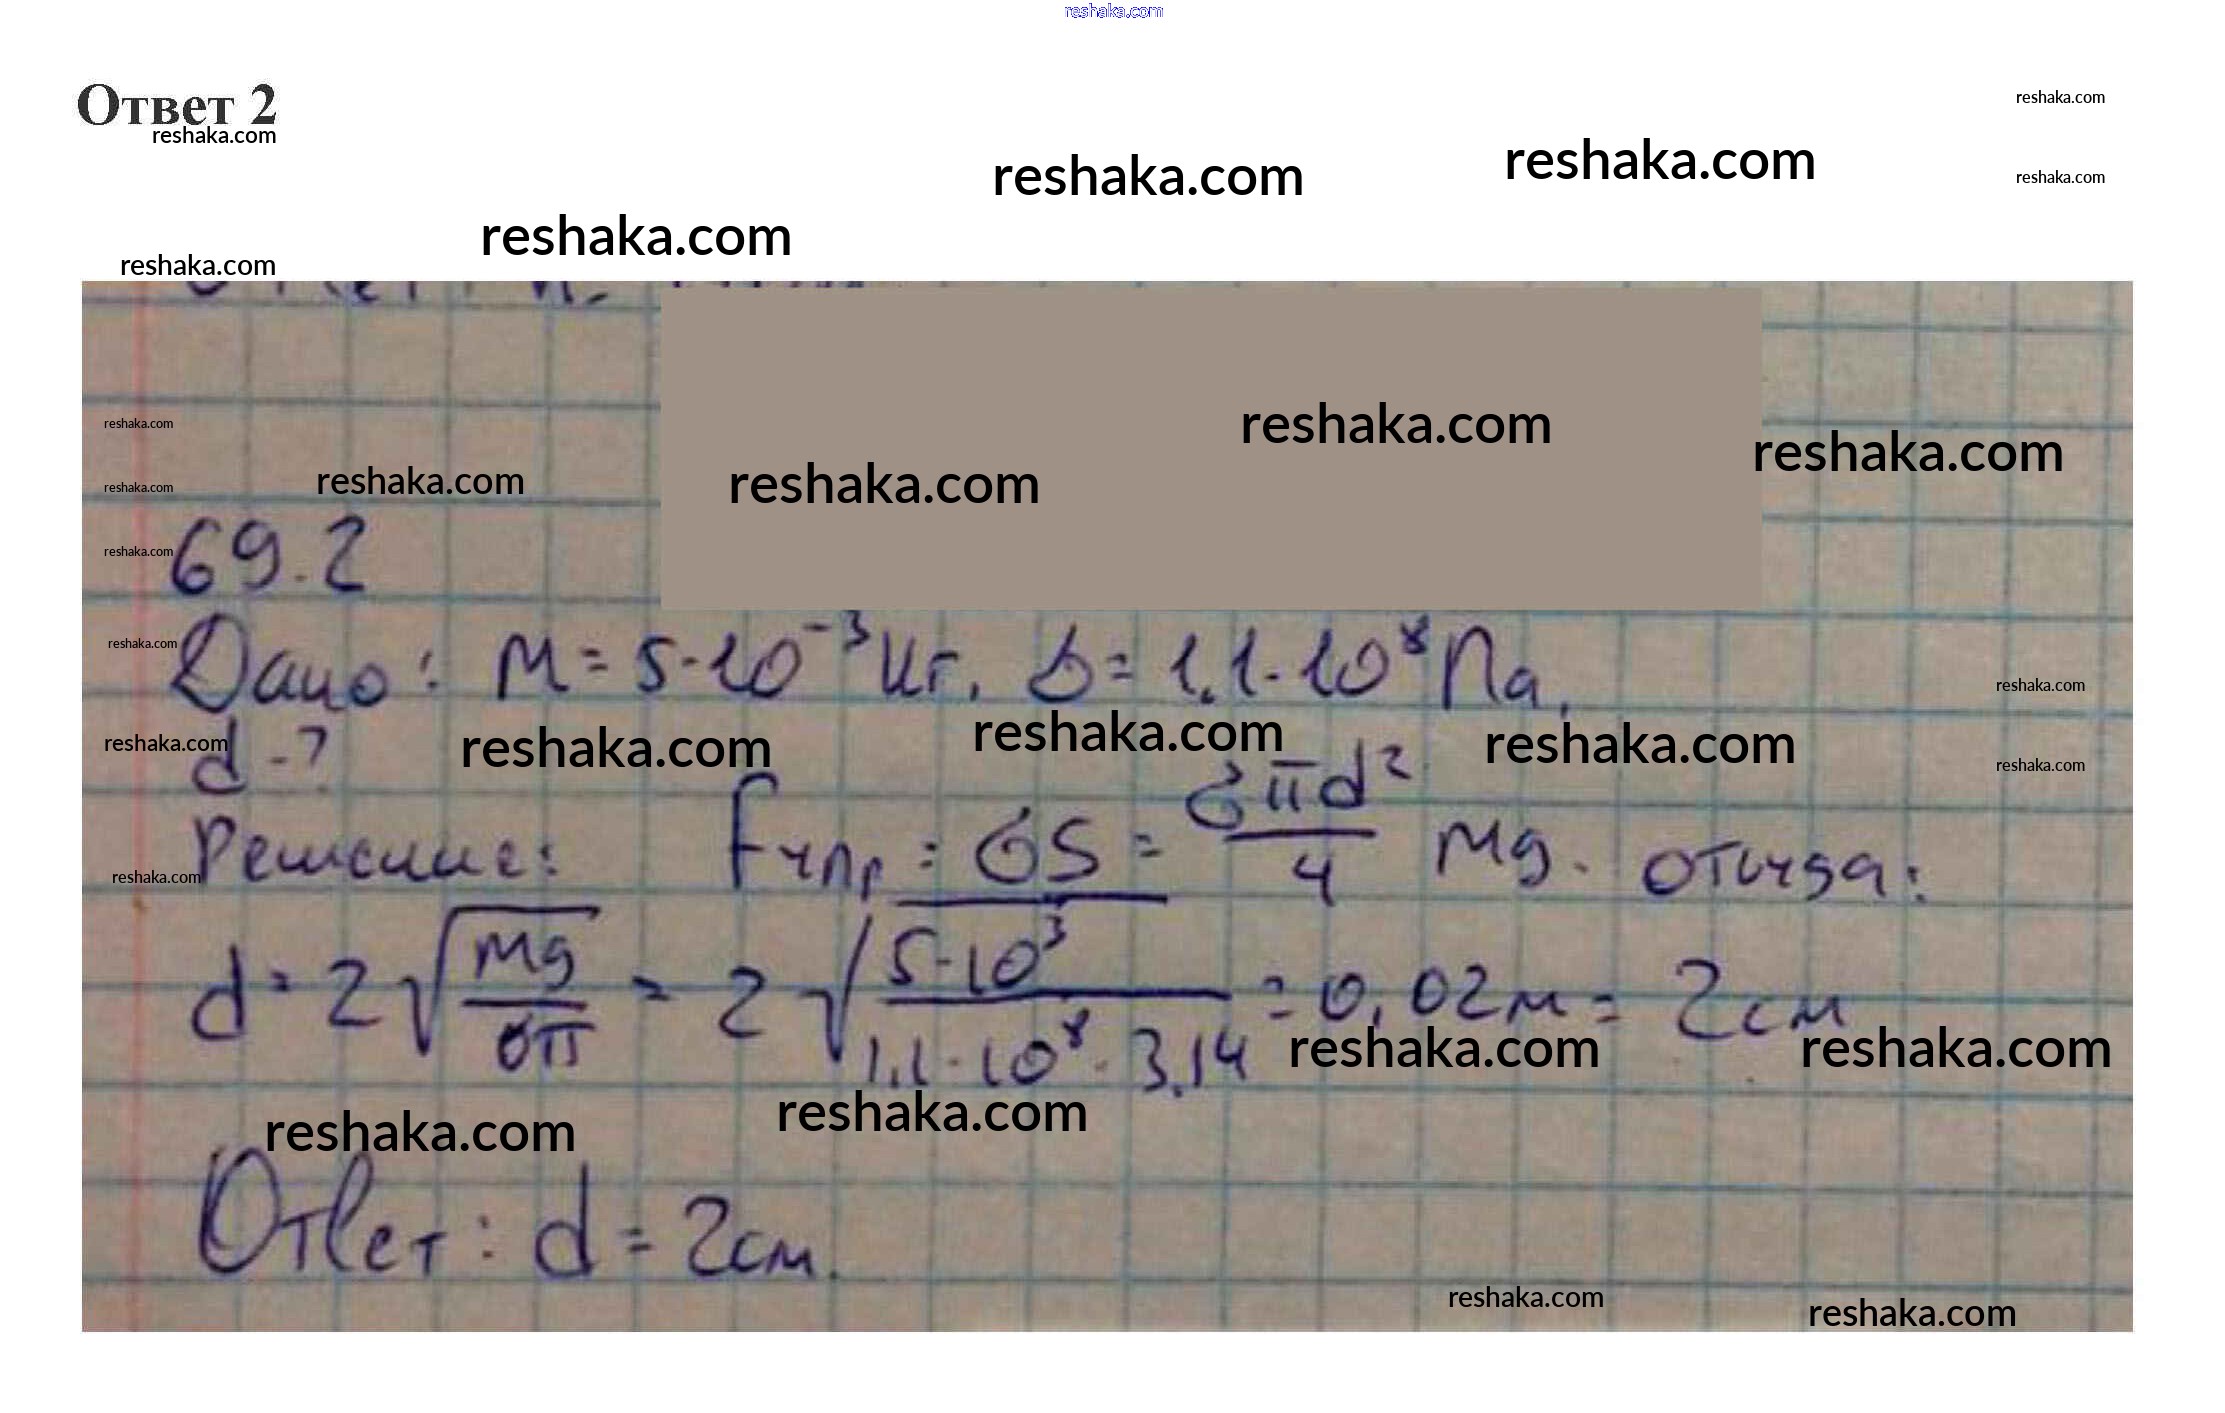 reshaka.com
Ответ 2
reshaka.com
reshaka.com
reshaka.com
reshaka.com
reshaka.com
reshaka.com
reshaka.com
reshaka.com
reshaka.com
reshaka.com
reshaka.com
reshaka.com
reshaka.com
reshaka.com
69.2
reshaka.com
Дано: M = 5·10⁻³ кг, б = 1,1·10⁸ Па,
reshaka.com
reshaka.com
d - ?
reshaka.com
reshaka.com
reshaka.com
reshaka.com
reshaka.com
Решение: Fупр = σS = σπd²/4 Mg. откуда:
reshaka.com
d = 2√(Mg/σπ) = 2√(5·10³/1,1·10⁸·3,14) = 0,02м = 2см
reshaka.com
reshaka.com
reshaka.com
reshaka.com
Ответ: d = 2см.
reshaka.com
reshaka.com